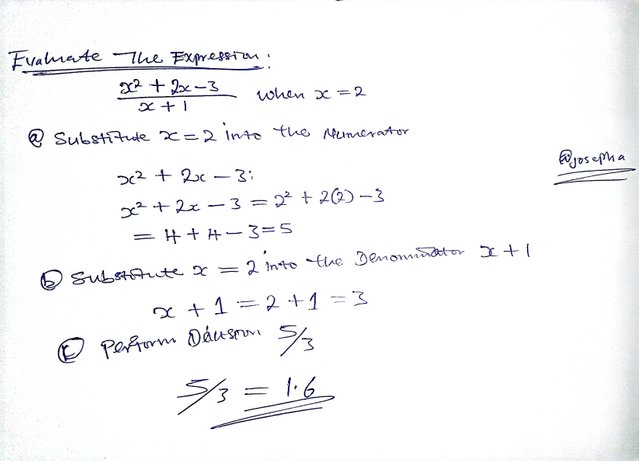 Evaluate The Expression:
x² + 2x - 3 / x + 1 when x = 2
ⓐ Substitute x = 2 into the Numerator
@josepha
x² + 2x - 3:
x² + 2x - 3 = 2² + 2(2) - 3
= 4 + 4 - 3 = 5
ⓑ Substitute x = 2 into the Denominator x + 1
x + 1 = 2 + 1 = 3
ⓒ Perform 5/3
5/3 = 1.6